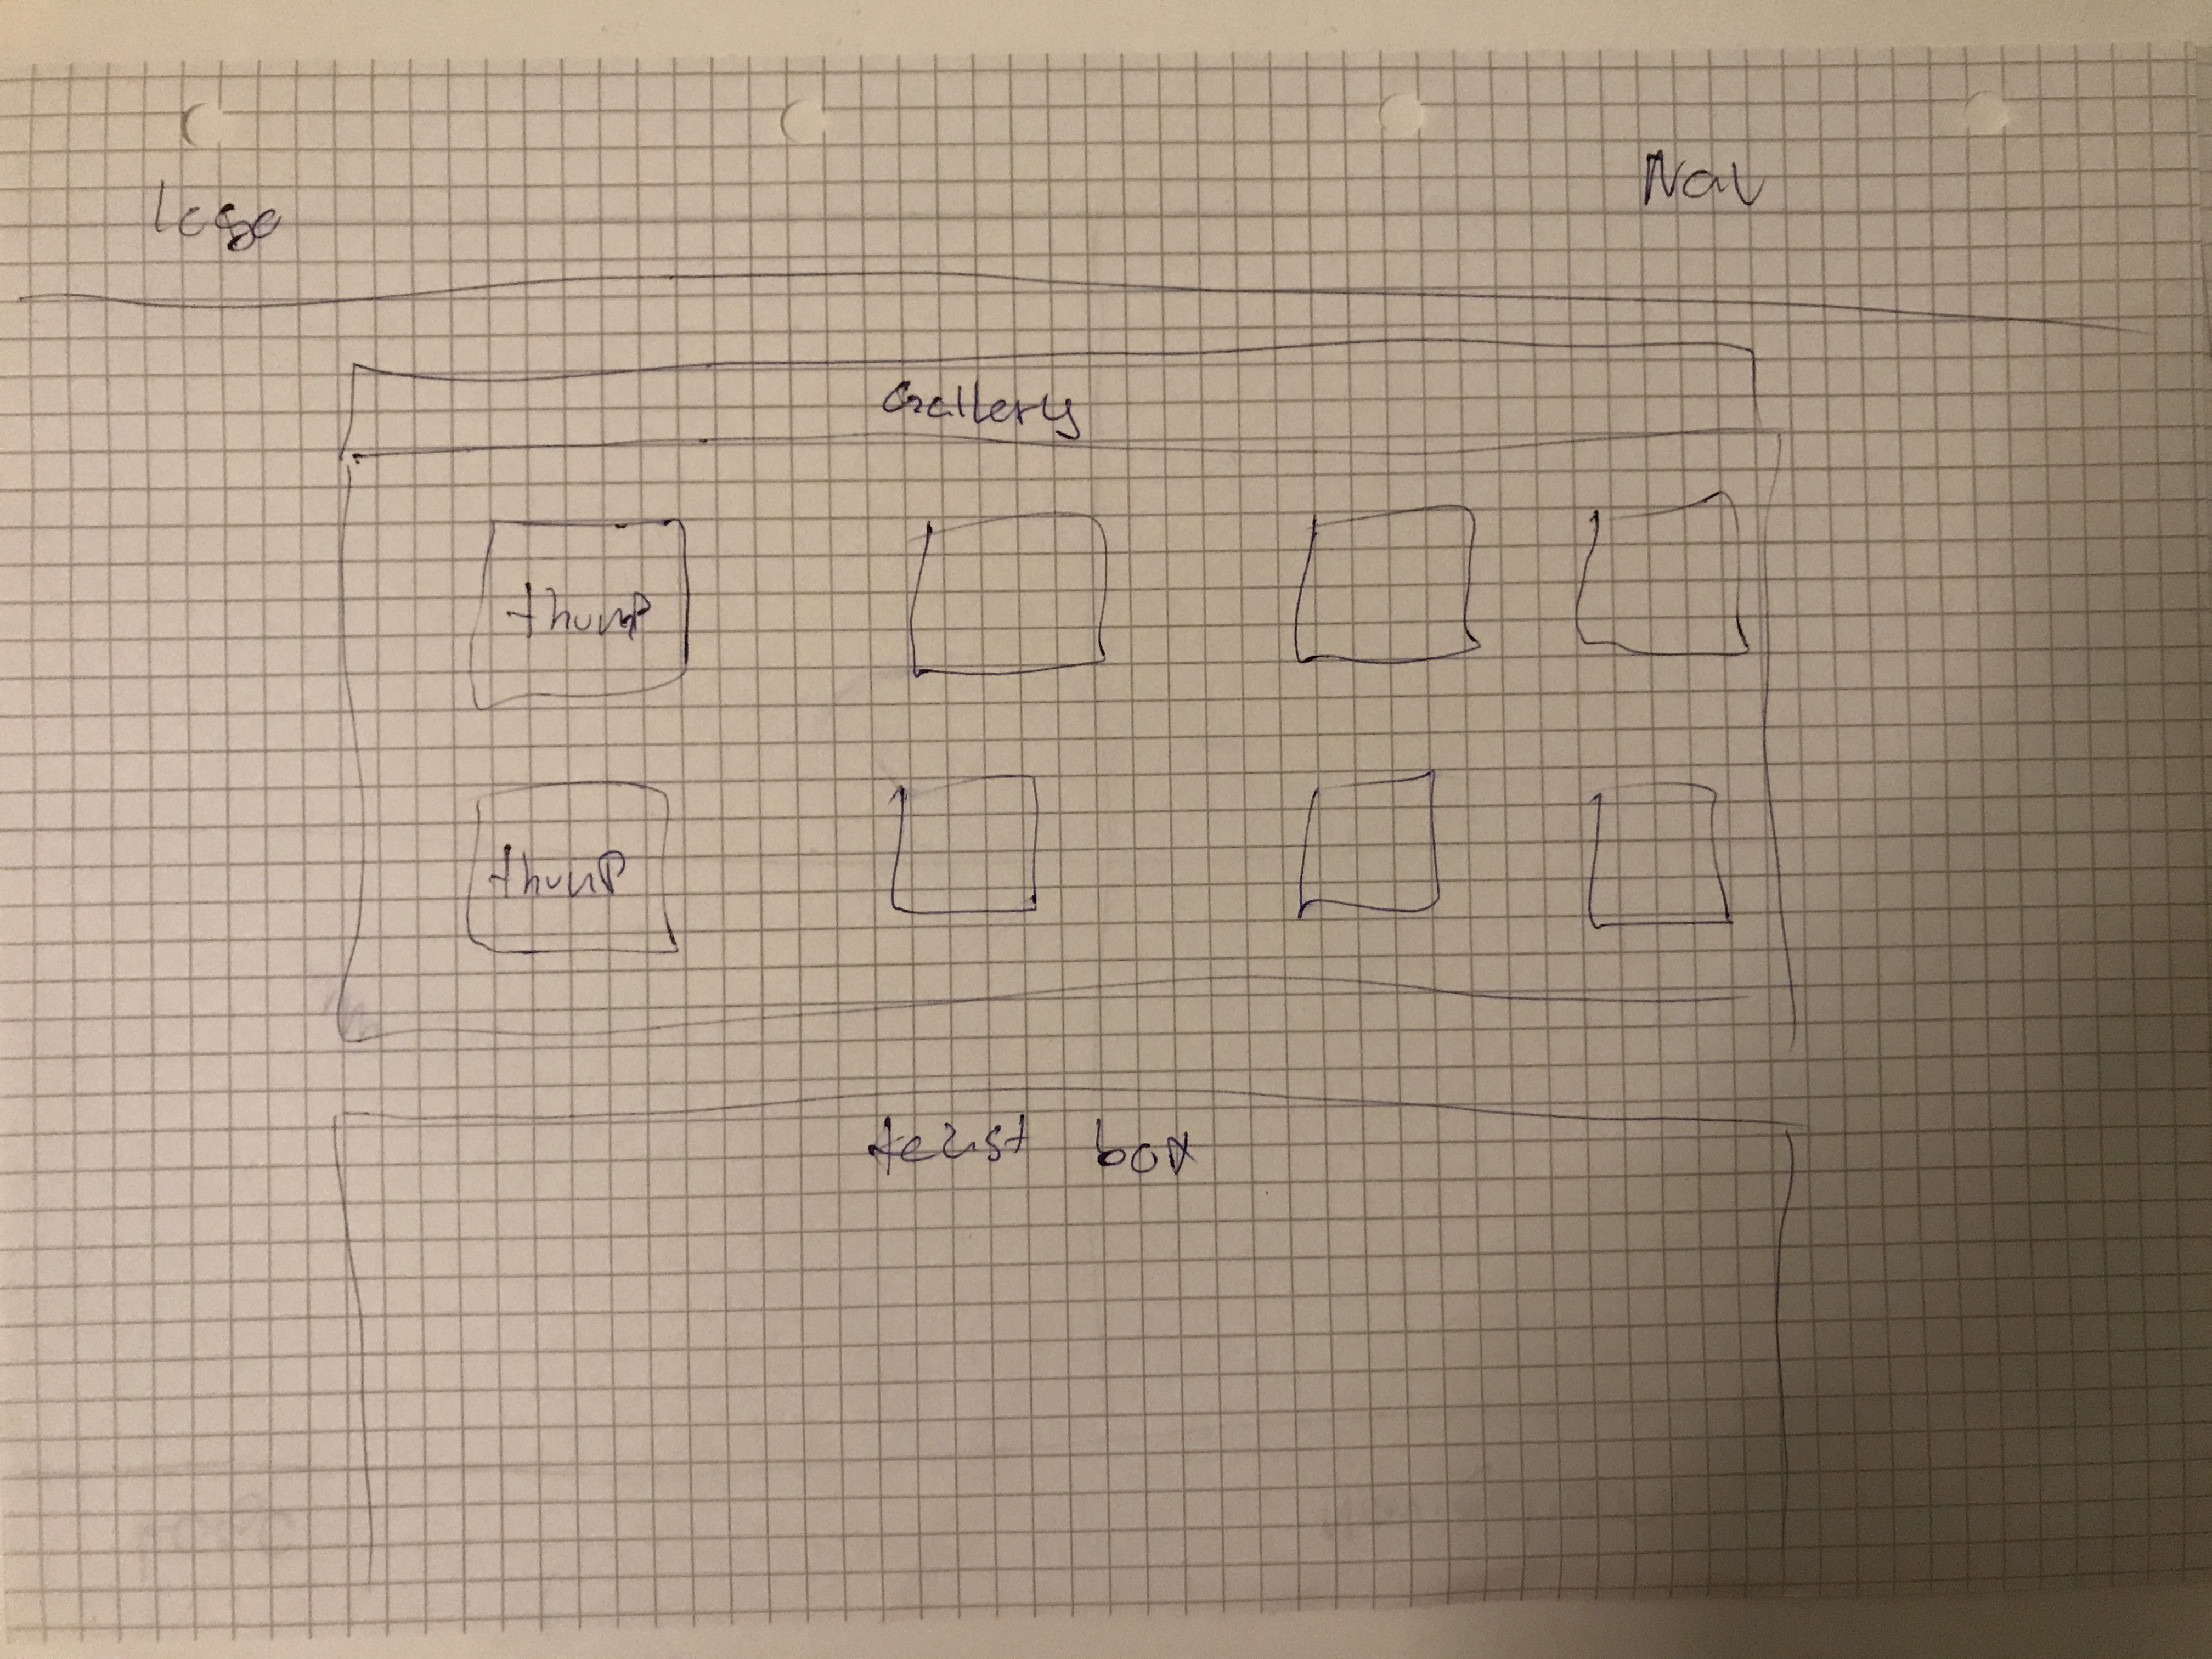 logo Nav
Gallery
thump
thump
box